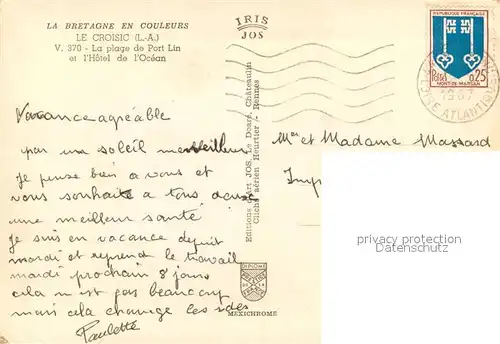 LA BRETAGNE EN COULEURS
LE CROISIC (L.-A.)
V. 370 - La plage de Port Lin
et l'Hôtel de l'Océan
IRIS
JOS
REPUBLIQUE FRANÇAISE
Postes 0,25
MONT-DE-MARSAN
1967
LOIRE ATLANTIQUE
Vacance agréable
par un soleil merveilleux
Je pense bien a vous et
vous souhaite a tous deux
une meilleur santé
Je suis en vacance depuit
mardi et reprend le travail
mardi prochain 8 jours
cela n est pas beaucoup
mais cela change les ides
Paulette
Editions d'Art JOS. Le Doaré, Châteaulin
Cliché aérien Heurtier - Rennes
DIPLOME
MEXICHROME
Mr et Madame Massard
Imp
privacy protection
AKPOOL.DE